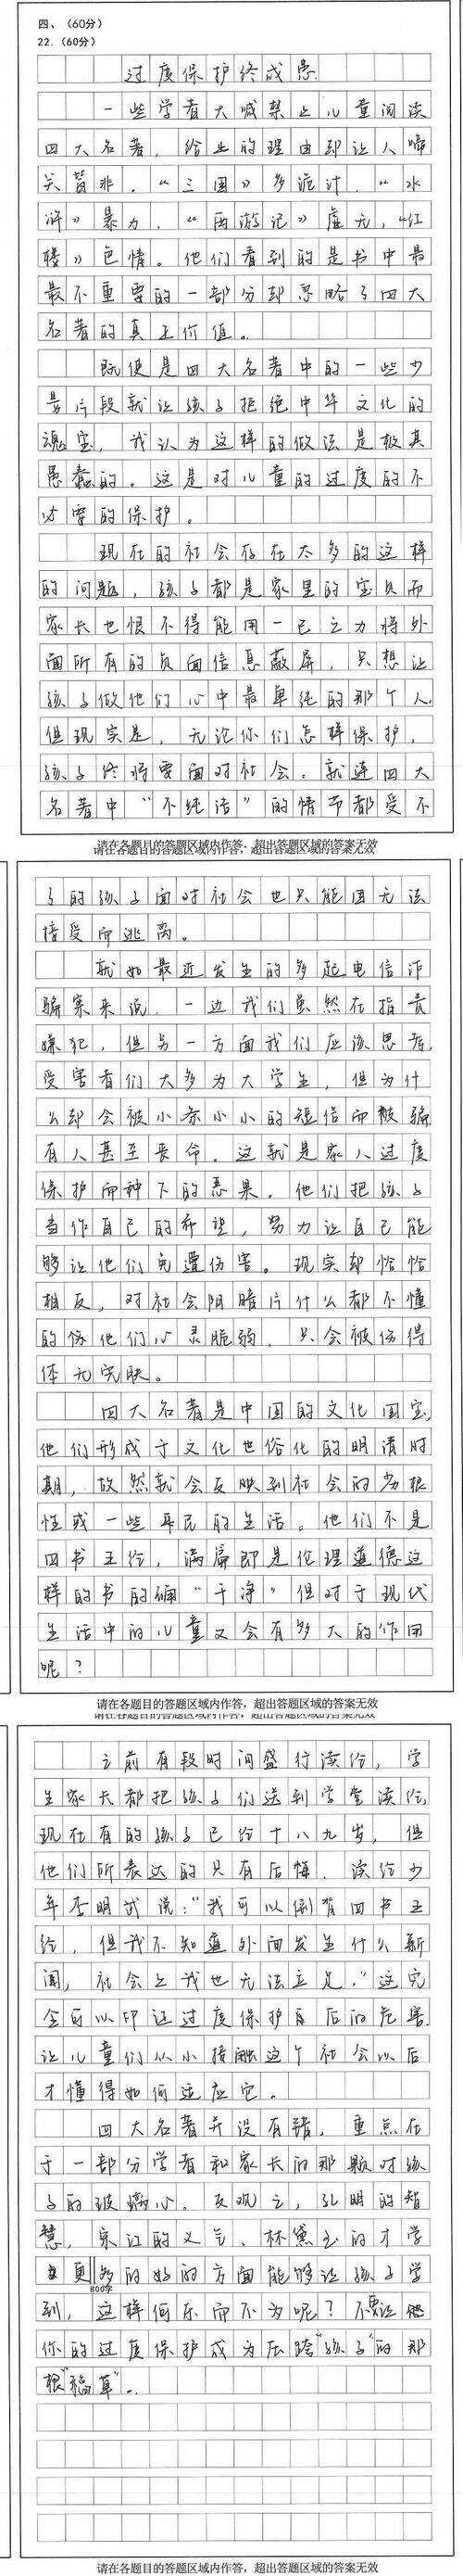 四、（60分）
22.（60分）
过度保护终成患
一些学者大喊禁止儿童阅读
四大名著，给出的理由却让人啼
笑皆非，“三国》多诡计，“水
浒》暴力，“西游记》虚无，“红
楼》色情。他们看到的是书中最
最不重要的一部分却忽略了四大
名著的真正价值。
既便是四大名著中的一些少
量片段就让孩子拒绝中华文化的
瑰宝，我认为这样的做法是极其
愚蠢的。这是对儿童的过度的不
必要的保护。
现在的社会存在太多的这样
的问题，孩子都是家里的宝贝而
家长也恨不得能用一己之力将外
面所有的负面信息蔽屏，只想让
孩子做他们心中最单纯的那个人.
但现实是，无论你们怎样保护，
孩子终将要面对社会。就连四大
名著中“不纯洁”的情节都受不
请在各题目的答题区域内作答，超出答题区域的答案无效
了的孩子面对社会也只能因无法
接受而逃离。
就如最近发生的多起电信诈
骗案来说，一边我们虽然在指责
嫌犯，但另一方面我们应该思考，
受害者们大多为大学生，但为什
么却会被小小的短信而被骗
有人甚至丧命，这就是家人过度
保护而种下的恶果，他们把孩子
当作自己的希望，努力让自己能
够让他们免遭伤害。现实却恰恰
相反，对社会阴暗片什么都不懂
的他们心灵脆弱，只会被伤得
体无完肤。
四大名著是中国的文化国宝，
他们形成于文化世俗化的明清时
期，故然就会反映到社会的劣根
性或一些平民的生活。他们不是
四书五经，满篇即是伦理道德这
样的书的确“干净”但对于现代
生活中的儿童又会有多大的作用
呢？
请在各题目的答题区域内作答，超出答题区域的答案无效
之前有段时间盛行读经，学
生家长都把孩子们送到学堂读经，
现在有的孩子已经十八九岁，但
他们所表达的只有后悔，读经少
年李明武说：“我可以倒背四书五
经，但我不知道外面发生什么新
闻，社会上我也无法立足，”这完
全可以印证过度保护背后的危害.
让儿童们从小接触这个社会以后
才懂得如何适应它。
四大名著并没有错，重点在
于一部分学者和家长的那颗对孩
子的玻璃心。反观之，孔明的智
慧，宋江的义气，林黛玉的才学
更多的好的方面能够让孩子学
800字
到，这样何乐而不为呢？不要让
你的过度保护成为压垮“孩子”的那
根“稻草”。
请在各题目的答题区域内作答，超出答题区域的答案无效